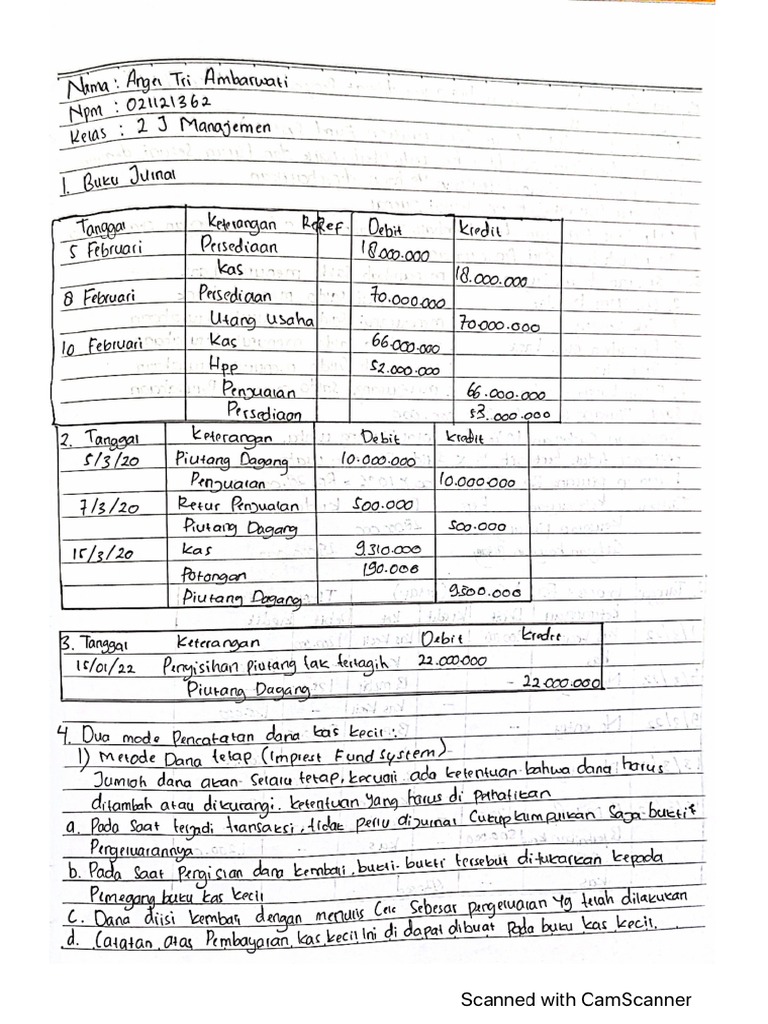 Nama : Anger Tri Ambarwati
Npm : 021121362
Kelas : 2 J Manajemen
1. Buku Jurnal
Tanggal Keterangan Ref Debit Kredit
5 Februari Persediaan 18.000.000
Kas 18.000.000
8 Februari Persediaan 70.000.000
Utang usaha 70.000.000
10 Februari Kas 66.000.000
Hpp 52.000.000
Penjualan 66.000.000
Persediaan 53.000.000
2. Tanggal Keterangan Debit Kredit
5/3/20 Piutang Dagang 10.000.000
Penjualan 10.000.000
7/3/20 Retur Penjualan 500.000
Piutang Dagang 500.000
15/3/20 Kas 9.310.000
Potongan 190.000
Piutang Dagang 9.500.000
3. Tanggal Keterangan Debit Kredit
15/01/22 Penyisihan piutang tak tertagih 22.000.000
Piutang Dagang - 22.000.000
4. Dua mode Pencatatan dana kas kecil :
1) Metode Dana tetap (Imprest Fund System)
Jumlah dana akan selalu tetap, kecuali ada ketentuan bahwa dana harus
ditambah atau dikurangi. ketentuan yang harus di perhatikan
a. Pada saat terjadi transaksi, tidak perlu dijurnal Cukup kumpulkan Saja bukti²
Pengeluarannya
b. Pada saat Pengisian dana kembali, bukti-bukti tersebut ditukarkan kepada
Pemegang buku kas kecil
c. Dana diisi kembali dengan menulis Cek Sebesar pengeluaran Yg telah dilakukan
d. Catatan atas Pembayaran kas kecil Ini di dapat dibuat Pada buku kas kecil.
Scanned with CamScanner